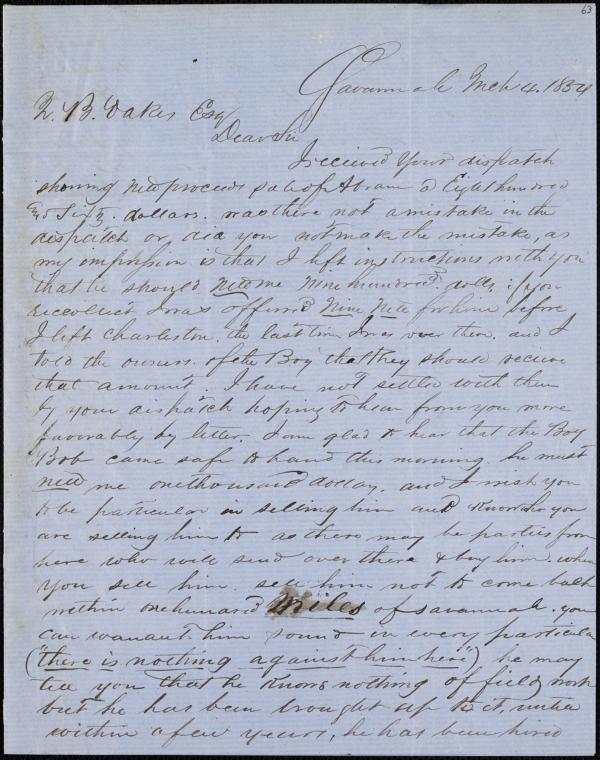 63
Savannah Mch 4. 1854
Z. B. Oakes Esq
Dear Sir
I received your dispatch
showing nett proceeds sale of Abram @ Eight hundred
and Sixty. dollars. was there not a mistake in the
dispatch or did you not make the mistake, as
my impression is that I left instructions with you
that he should nett me nine hundred. dolls, if you
reccollect I was offerred Nine Nett for him before
I left Charleston. the last time I was over there. and I
told the owners. of the Boy that they should receive
that amount. I have not settled with them
by your dispatch hoping to hear from you more
favorably by letter. I am glad to hear that the Boy
Bob came safe to hand this morning. he must
nett me one thousand dollars. and I wish you
to be particular in selling him and Know who you
are selling him to as there may be parties from
here who will send over there & buy him. when
you sell him. sell him not to come back
within one hundred miles of Savannah. you
can warrant him sound in every particular
("there is nothing against him here") he may
tell you that he Knows nothing of field work
but he has been brought up to it, untill
within a few years, he has been hired